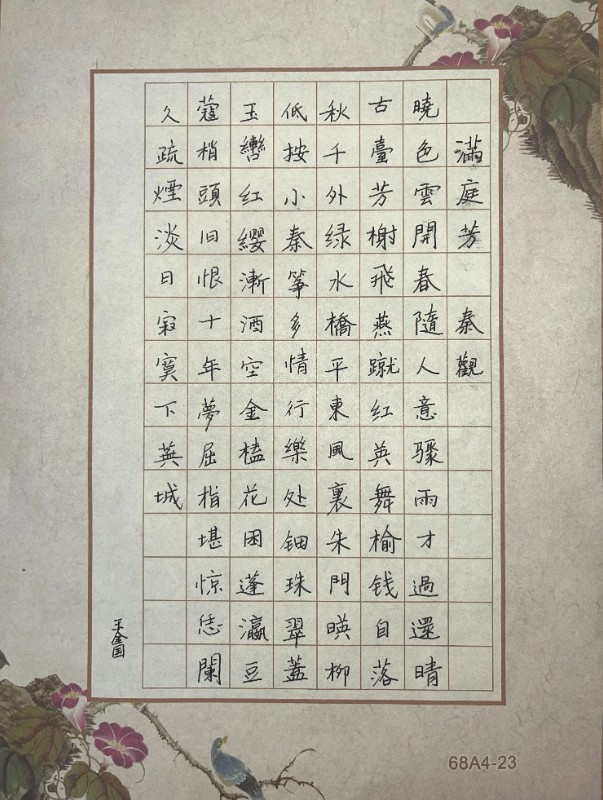 滿庭芳 秦觀
曉色雲開春隨人意驟雨才過還晴
古臺芳榭飛燕蹴红英舞榆钱自落
秋千外绿水橋平東風裏朱門暎柳
低按小秦筝多情行樂处钿珠翠蓋
玉轡红纓漸酒空金榼花困蓬瀛豆
蔻梢頭旧恨十年夢屈指堪惊恁闌
久疏煙淡日寂寞下蕪城
王金国
68A4-23